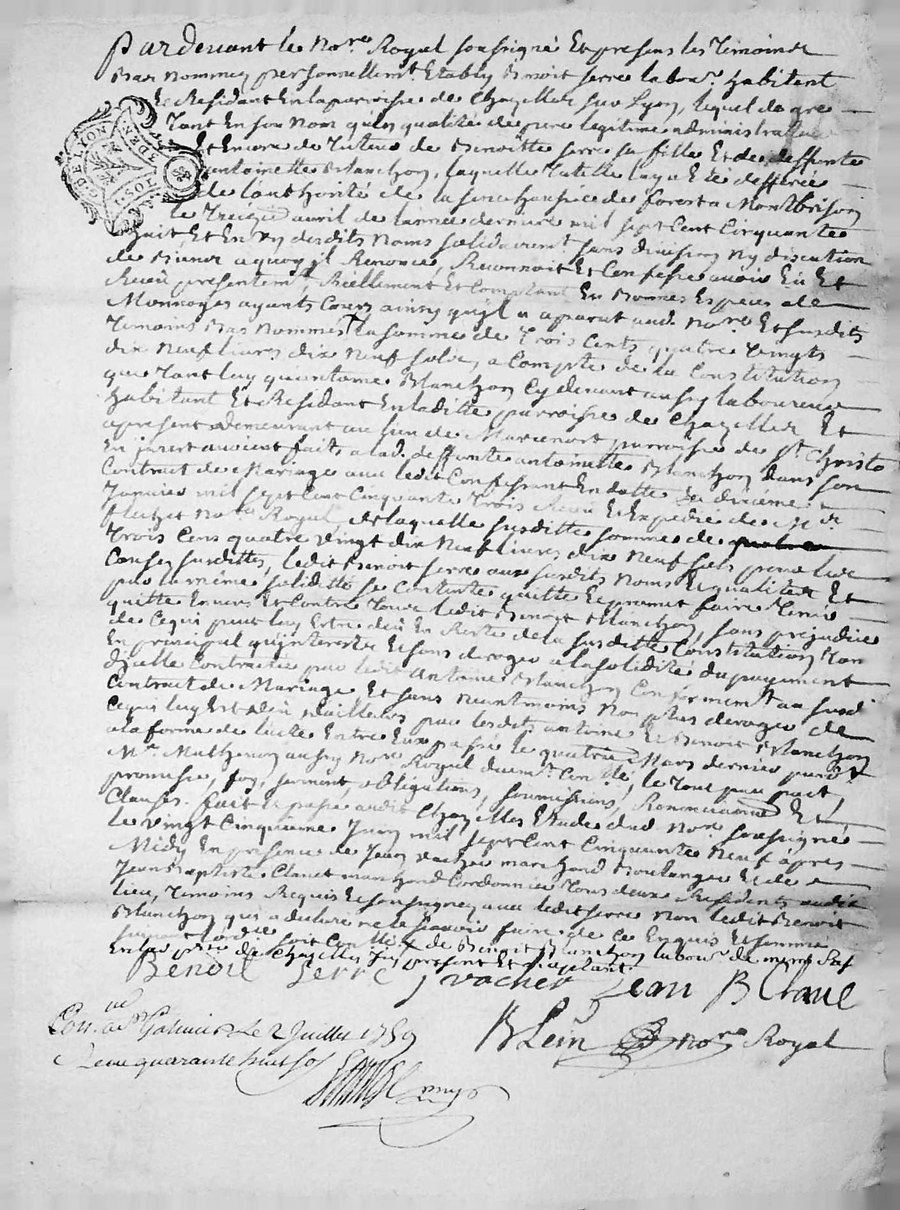 Pardevant le No.re Royal soussigné Et presens les Temoins
Bas Nommez personnellem.t Etably Benoit serre labou.r habitant
Et Residant En la parroisse de Chazelles sur Lyon, lequel de gre
Tant En son Nom qu'en qualité de pere legitime administrateur
Et Encore de Tuteur de Benoitte serre sa fille Et de deffunte
antoinette Blanchon, laquelle Tutelle luy a Eté defferée
de l'authorité de la senechaussée de forest a Montbrison
le Treize avril de l'année derniere mil sept Cent Cinquante
huit, Et En Un desdits Noms solidairem.t sans division Ny discution
de Biens a quoy il Renonce, Reconnoit Et Confesse avoir Eü Et
Receü presentem.t Reellement Et Comptant En Bonnes Especes de
Monnoyes ayants Cours ainsy qu'il a aparut aud. No.re Et susdits
Temoins Bas Nommes la somme de Trois Cents quatre Vingts
dix Neuf livres dix Neuf sols, a Compte de la Constitution
que Tant luy qu'antoine Blanchon Cy devant aussy laboureur
habitant Et Residant En laditte parroisse de Chazelles Et
apresent demeurant au lieu de parroisse de S.t Christo
En jarest avoient fait a lad. deffunte antoinette Blanchon dans son
Contract de Mariage avec ledit Confessant En datte du dixieme
Janvier mil sept Cent Cinquante Trois Receu Et Expedié
No.re Royal, de laquelle susditte somme de
Trois Cens quatre Vingt dix Neuf livres dix Neuf sols pour les
Causes susdittes, ledit Benoit serre aux susdits Noms Et qualités Et
par la même solidité se Contente quitte Et promet faire Tenir
quitte Envers Et Contre Tous ledit Benoit Blanchon, sans prejudice
de Ce qui peut luy Etre deü En Reste de la susditte Constitution Tan
En principal qu'interests Et sans deroger a la solidité du payement
d'jcelle Contractée par ledit Antoine Blanchon Conformem.t au susd.
Contract de Mariage Et sans Neantmoins Non plus deroger de
Ce qui luy Est deü d'ailleurs par lesdits antoine Et Benoit Blanchon
a la forme de l'acte Entre Eux passé le quatre Mars dernier pard.t
M.e aussy No.re Royal duem.t Con.llé, le Tout par pact,
promesse, foy, serment, obligations, soumissions, Renonciations Et
Clauses. fait Et passé audit Chazelles Etude dud. No.re soussigné
le Vingt Cinquieme Juin mil sept Cent Cinquante Neuf apres
Midy En presence de Jean Vacher marchand Boulanger Et de
Jean Baptiste Claret marchand Cordonnier Tous deux Residents audit
lieu, Temoins Requis Et soussignez avec ledit serre Non ledit Benoit
Blanchon qui a declaré ne le sçavoir faire de Ce Enquis Et sommé
suivant l'ordce soit Con.llé de Benoit Blanchon labou.r de
En lad. p.sse de Chazelles Jcy present Et acceptant
Benoit Serre J vacher Jean B Claret
BLein no.re Royal
Con.llé a S.t Galmier Le 2 Juillet 1759
Receu quarante huit sols
DE LYON